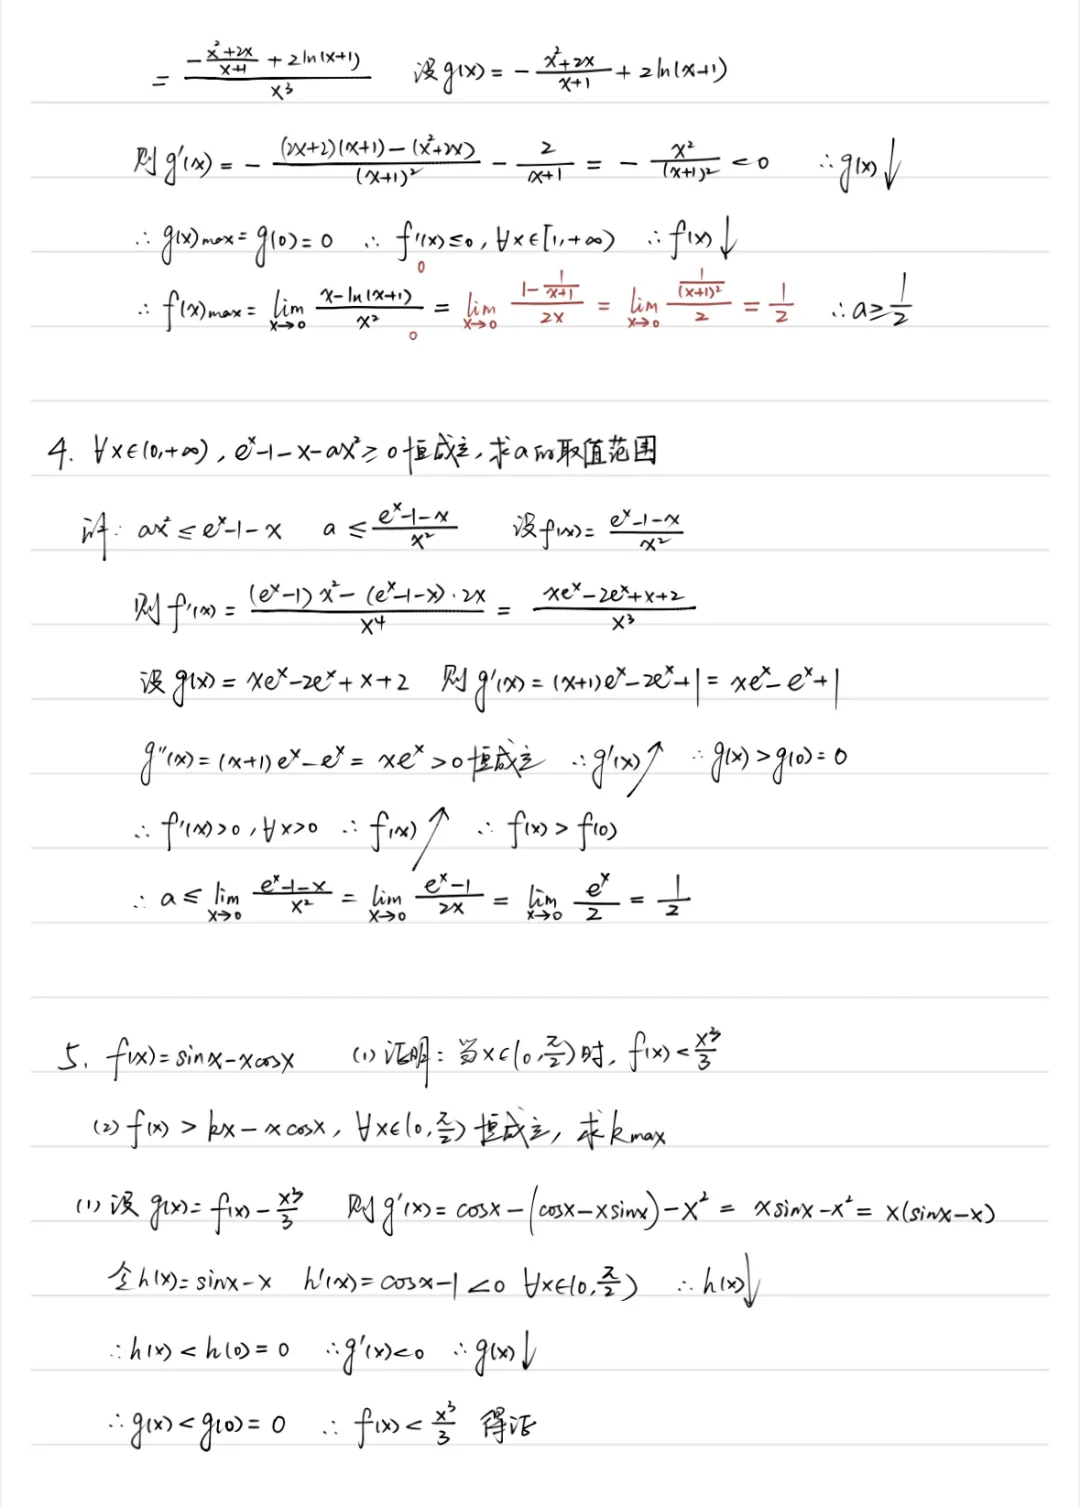 = (-(x²+2x)/(x+1) + 2ln(x+1))/x³ 设g(x) = -(x²+2x)/(x+1) + 2ln(x+1)
则g'(x) = - ((2x+2)(x+1)-(x²+2x))/(x+1)² - 2/(x+1) = - x²/(x+1)² < 0 ∴g(x)↓
∴ g(x)max = g(0) = 0 ∴ f'(x)≤0, ∀x∈[1,+∞) ∴ f(x)↓
∴ f(x)max = lim x→0 (x-ln(x+1))/x² 0 0 = lim x→0 (1-1/(x+1))/2x = lim x→0 (1/(x+1)²)/2 = 1/2 ∴a≥1/2
4. ∀x∈(0,+∞), eˣ-1-x-ax²≥0恒成立,求a的取值范围
解: ax²≤eˣ-1-x a≤(eˣ-1-x)/x² 设f(x)=(eˣ-1-x)/x²
则f'(x) = ((eˣ-1)x²-(eˣ-1-x)·2x)/x⁴ = (xeˣ-2eˣ+x+2)/x³
设g(x) = xeˣ-2eˣ+x+2 则g'(x) = (x+1)eˣ-2eˣ+1 = xeˣ-eˣ+1
g''(x) = (x+1)eˣ-eˣ = xeˣ>0恒成立 ∴g'(x)↗ ∴g(x)>g(0)=0
∴ f'(x)>0, ∀x>0 ∴ f(x)↗ ∴ f(x)>f(0)
∴ a≤ lim x→0 (eˣ-1-x)/x² = lim x→0 (eˣ-1)/2x = lim x→0 eˣ/2 = 1/2
5. f(x)=sinx-xcosx (1)证明:当x∈(0,π/2)时, f(x)<x³/3
(2) f(x)>kx-xcosx, ∀x∈(0,π/2)恒成立, 求kmax
(1)设g(x)=f(x)-x³/3 则g'(x)=cosx-(cosx-xsinx)-x² = xsinx-x² = x(sinx-x)
令h(x)=sinx-x h'(x)=cosx-1<0 ∀x∈(0,π/2) ∴h(x)↓
∴h(x)<h(0)=0 ∴g'(x)<0 ∴g(x)↓
∴g(x)<g(0)=0 ∴ f(x)<x³/3 得证